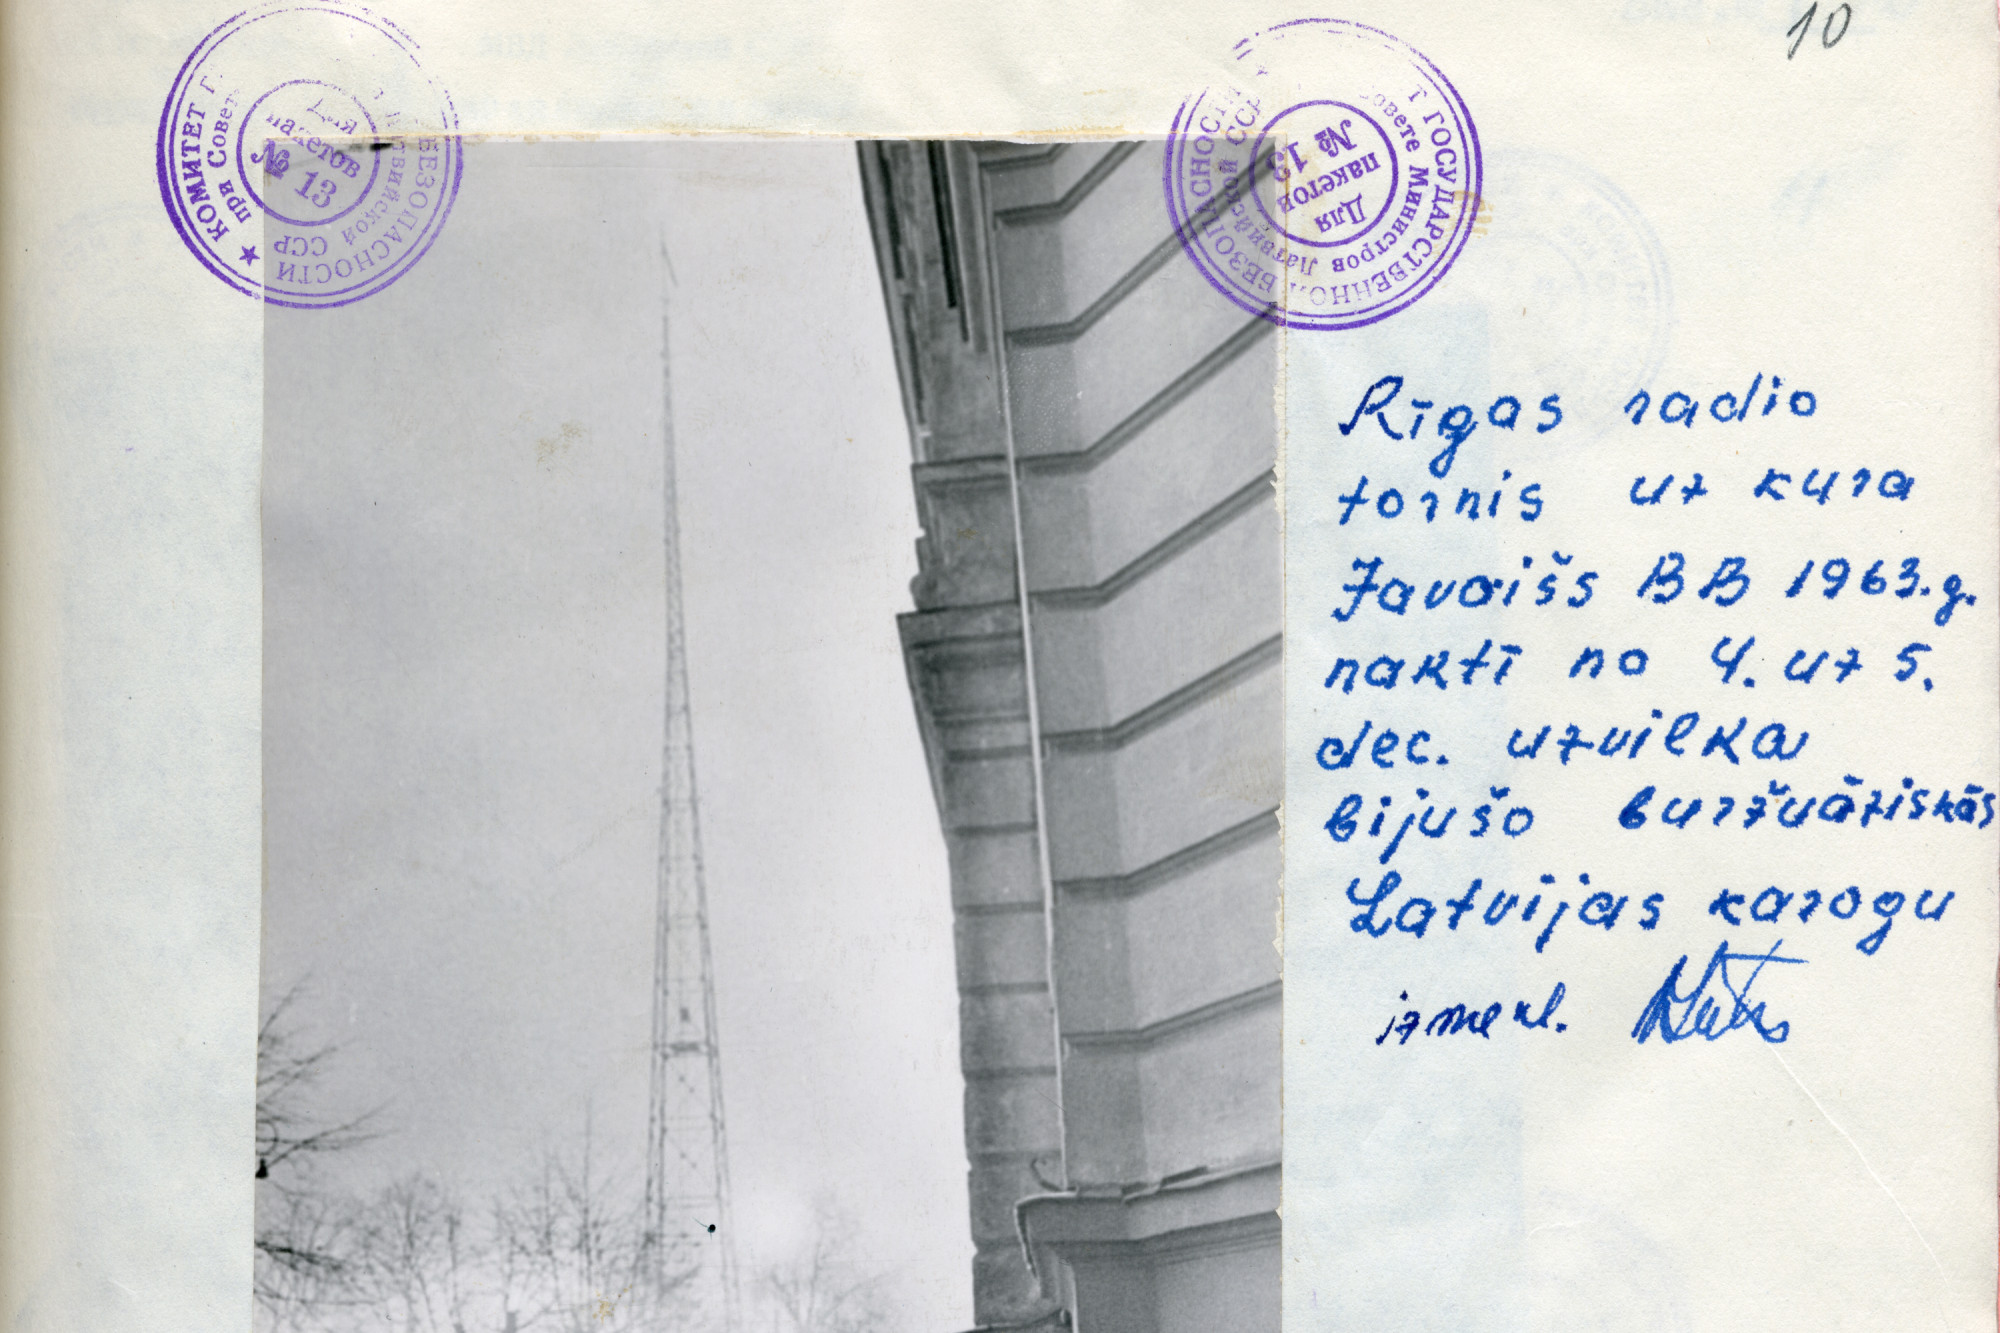 10
★ КОМИТЕТ Г БЕЗОПАСНОСТИ
при Совет твийской ССР
Для
пакетов
№ 13
Т ГОСУДАРСТВЕННО БЕЗОПАСНОСТИ
Совете Министров Латвийской ССР
Для
пакетов
№ 13
Rīgas radio
tornis uz kura
Javaišs BB 1963.g.
naktī no 4. uz 5.
dec. uzvilka
bijušo buržuāziskās
Latvijas karogu
izmekl.